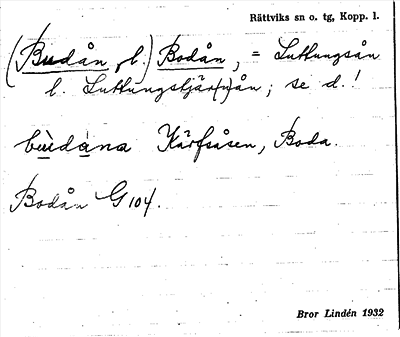 Rättviks sn o. tg, Kopp. l.
(Budån, l.) Bodån, = Luttungsån
l. Luttungstjär(n)ån; se d.!
bùdàna Kärfsåsen, Boda.
Bodån G 104.
Bror Lindén 1932